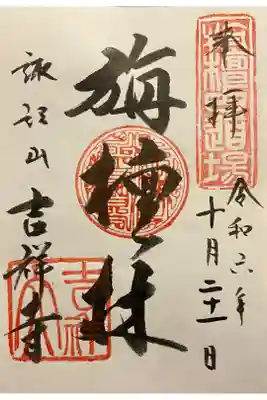 奉拝
令和六年
十月二十一日
旃檀林
諏訪山
吉祥寺